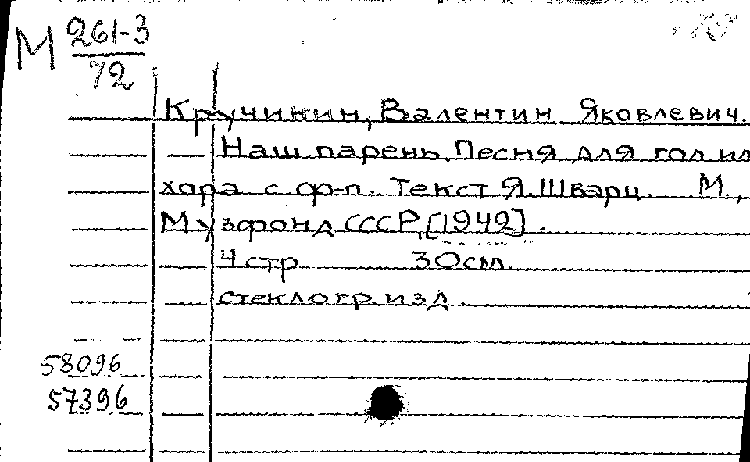 М 261-3
72
Кручинин, Валентин Яковлевич.
Наш парень. Песня для гол. ил
хора с ф-п. Текст Я. Шварц. М.,
Музфонд СССР, [1949].
4 стр 30 см.
стеклогр. изд.
58096
57396